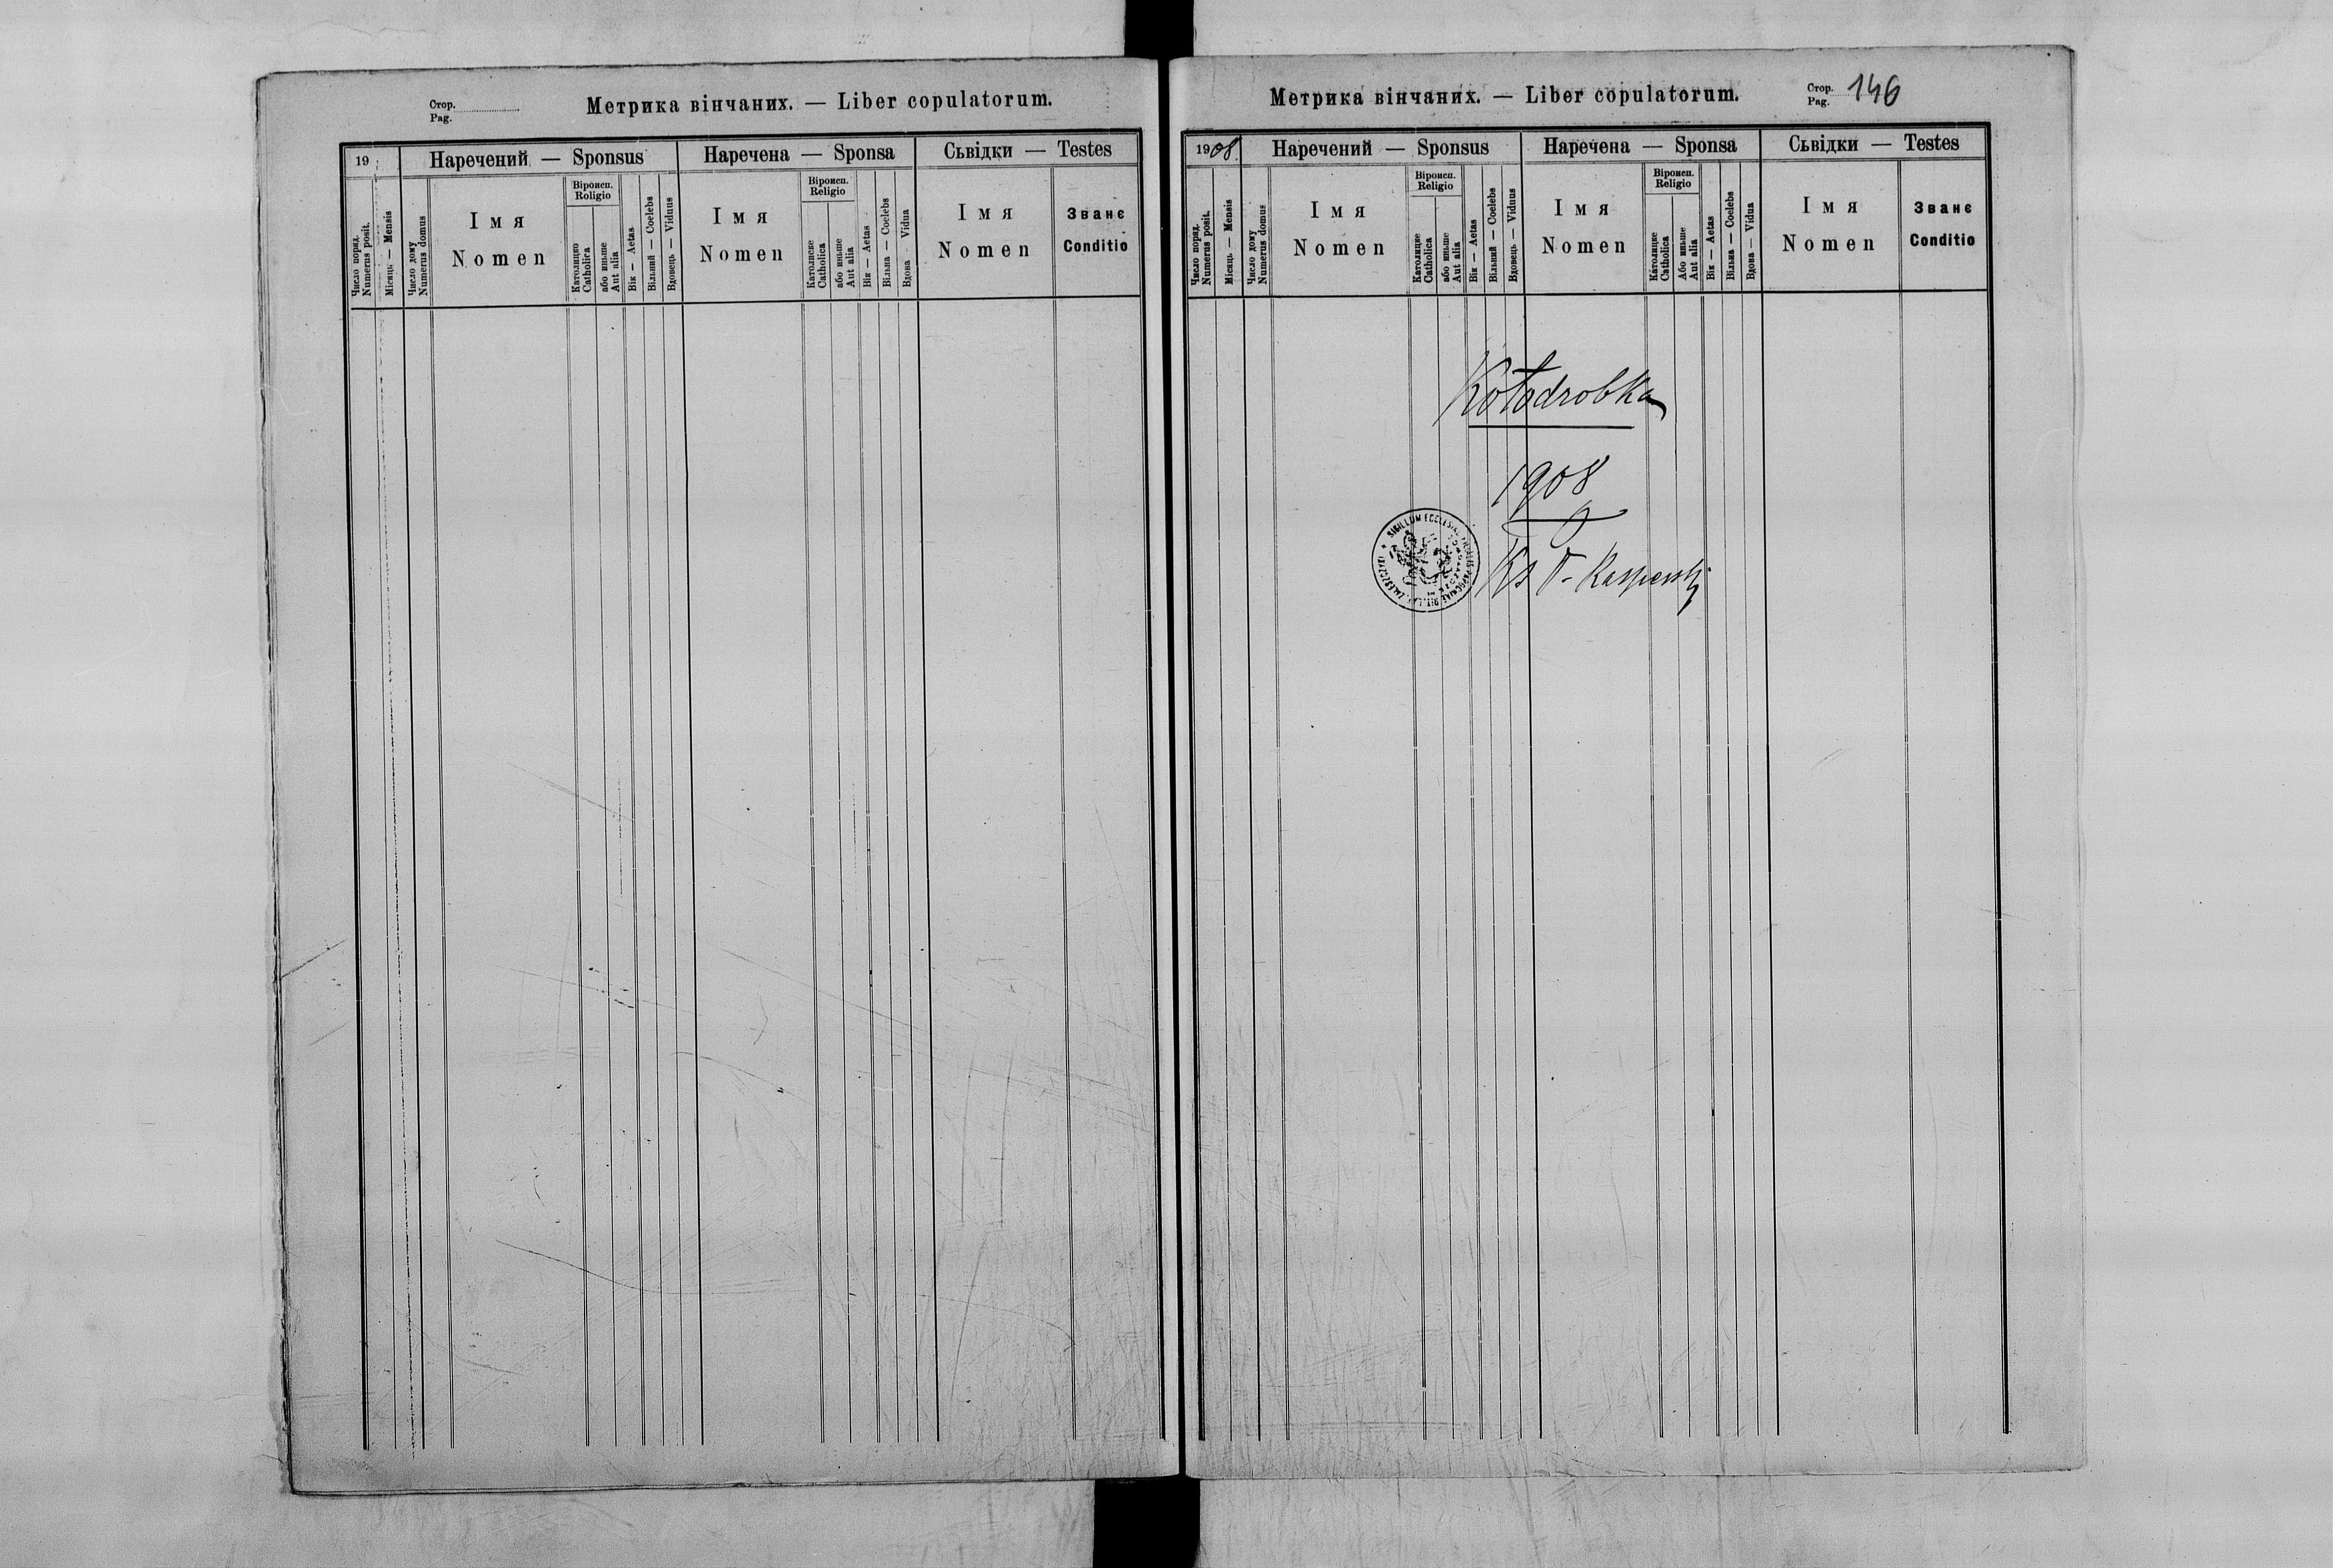 Стор.
Pag.
Метрика вінчаних. — Liber copulatorum.
19
Наречений — Sponsus
Наречена — Sponsa
Сьвідки — Testes
Число поряд.
Numerus posit.
Місяць — Mensis
Число дому
Numerus domus
Імя
Nomen
Віроисп.
Religio
Католицке
Catholica
або иньше
Aut alia
Вік — Aetas
Вільний — Coelebs
Вдовець — Viduus
Імя
Nomen
Віроисп.
Religio
Католиске
Catholica
або иньше
Aut alia
Вік — Aetas
Вільна — Coelebs
Вдова — Vidua
Імя
Nomen
Званє
Conditio
Метрика вінчаних. — Liber copulatorum.
Стор.
Pag. 146
1908.
Наречений — Sponsus
Наречена — Sponsa
Сьвідки — Testes
Число поряд.
Numerus posit.
Місяць — Mensis
Число дому
Numerus domus
Імя
Nomen
Віроисп.
Religio
Католицке
Catholica
або иньше
Aut alia
Вік — Aetas
Вільний — Coelebs
Вдовець — Viduus
Імя
Nomen
Віроисп.
Religio
Католицке
Catholica
Або иньше
Aut alia
Вік — Aetas
Вільна — Coelebs
Вдова — Vidua
Імя
Nomen
Званє
Conditio
Kołodrobka
1908
SIGILLUM
Ks